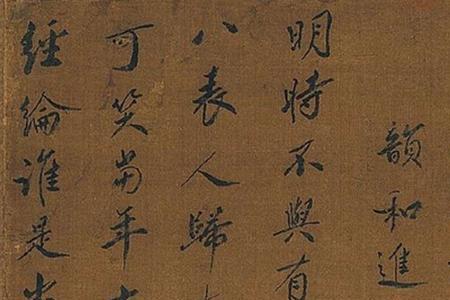 韻和進
明時不與有
八表人歸
可笑當年
經綸誰是